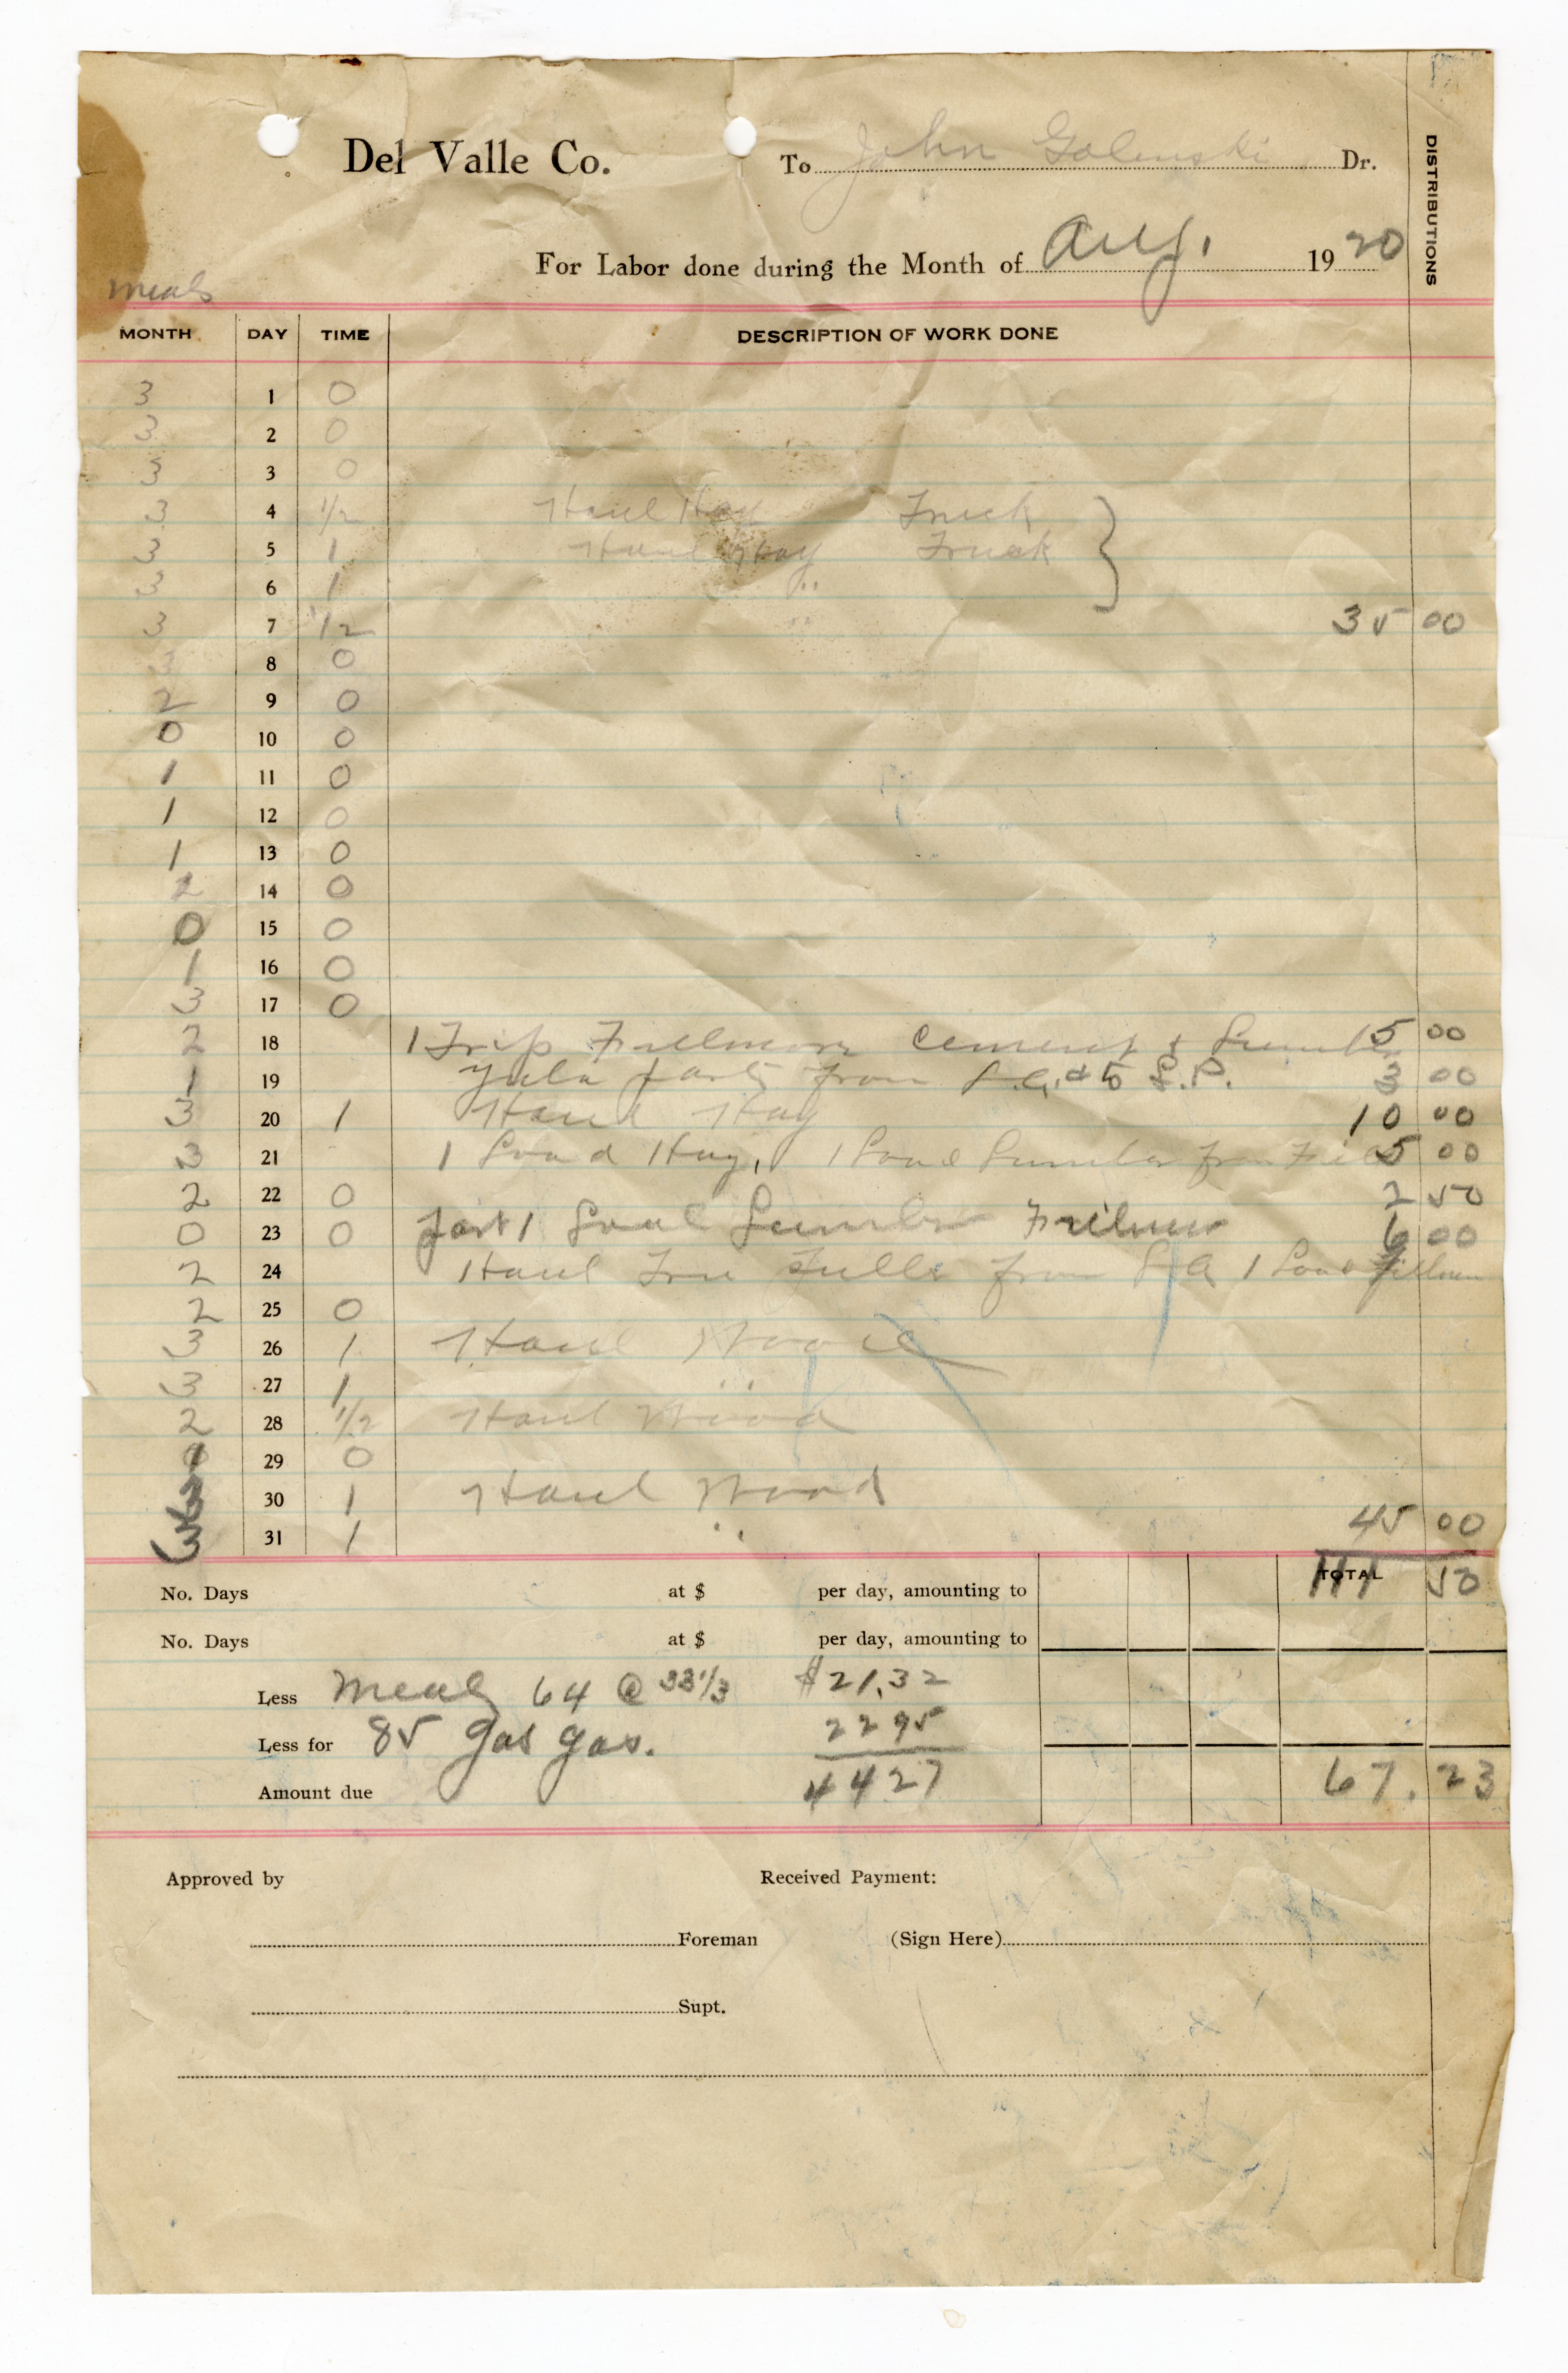 Del Valle Co. To John Golenski Dr.
DISTRIBUTIONS
For Labor done during the Month of Aug. 1920
meals
MONTH DAY TIME DESCRIPTION OF WORK DONE
3 1 0
3 2 0
3 3 0
3 4 1/2 Haul Hay Truck
3 5 1 Haul Hay Truck
3 6 1 " }
3 7 1/2 35 00
3 8 0
2 9 0
0 10 0
1 11 0
1 12 0
1 13 0
2 14 0
0 15 0
1 16 0
3 17 0
2 18 1 Trip Fillmore Cement & Lumber 5 00
1 19 parts from L.A. to S.P. 3 00
3 20 1 Haul Hay 10 00
3 21 1 Load Hay, 1 Load Lumber from Fill 5 00
2 22 0 2 50
0 23 0 Part 1 Load Lumber Fillmore 6 00
2 24 Haul from L A 1 Load Fillmore
2 25 0
3 26 1 Haul Wood
3 27 1 " "
2 28 1/2 Haul Wood
29 0
30 1 Haul Wood
3 31 1 " " 45 00
No. Days at $ per day, amounting to TOTAL 111 50
No. Days at $ per day, amounting to
Less Meals 64 @ 33 1/3 $21.32
Less for 85 gas gas. 22 95
Amount due 44 27 67.23
Approved by Received Payment:
Foreman (Sign Here)
Supt.